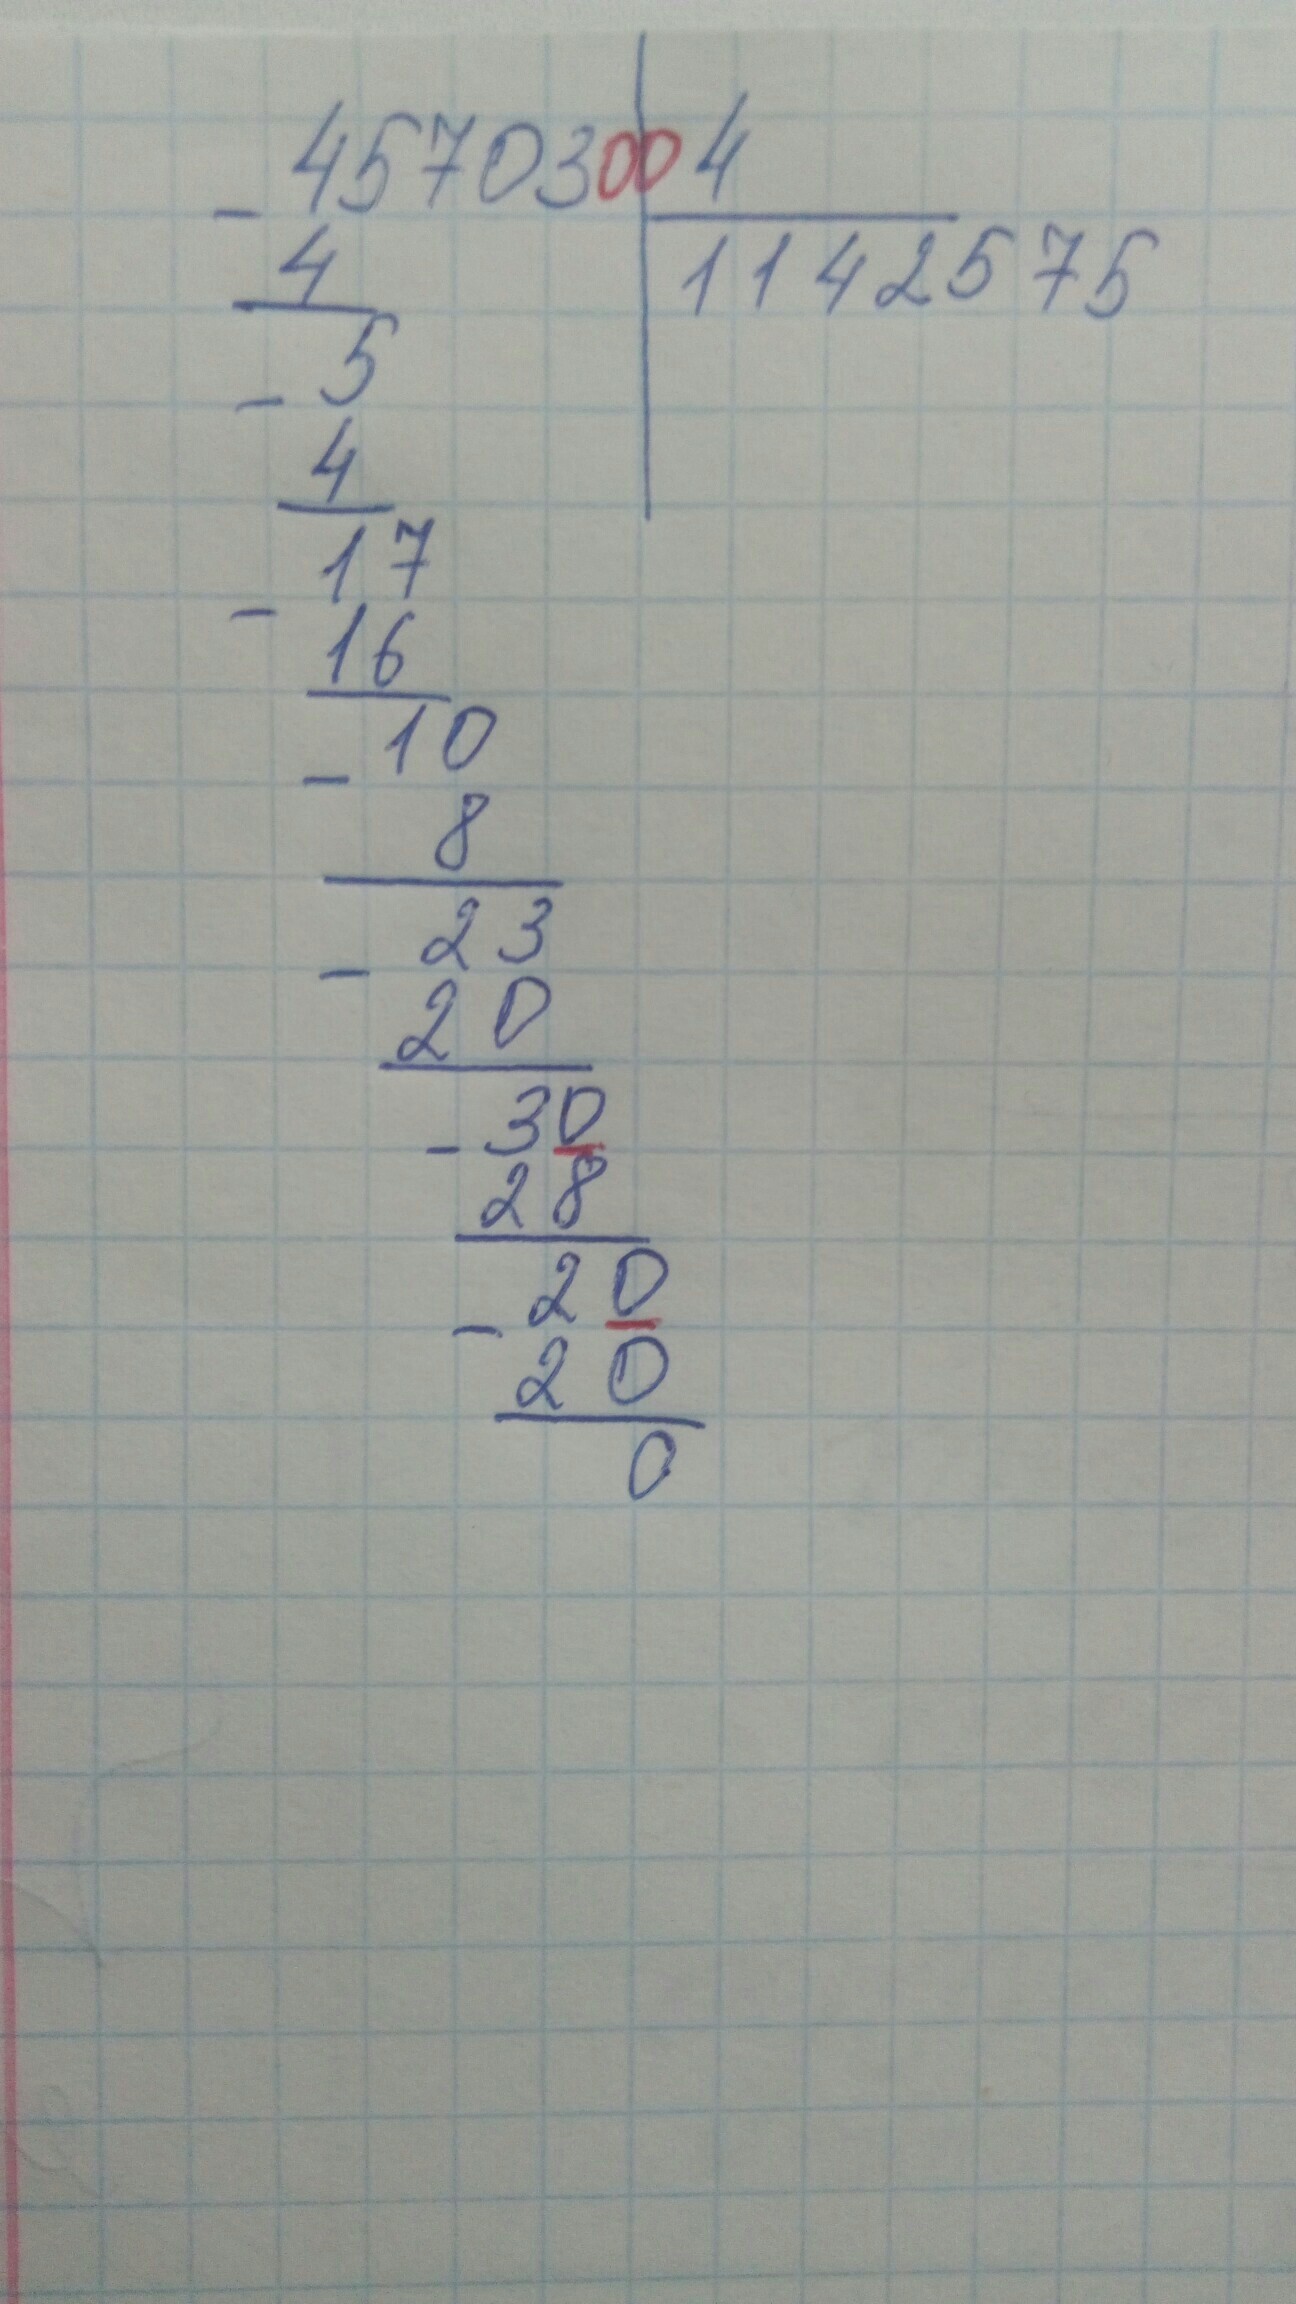 4570300 4
- 4 1142575
- 5
4
- 17
16
- 10
8
- 23
20
- 30
28
- 20
20
0